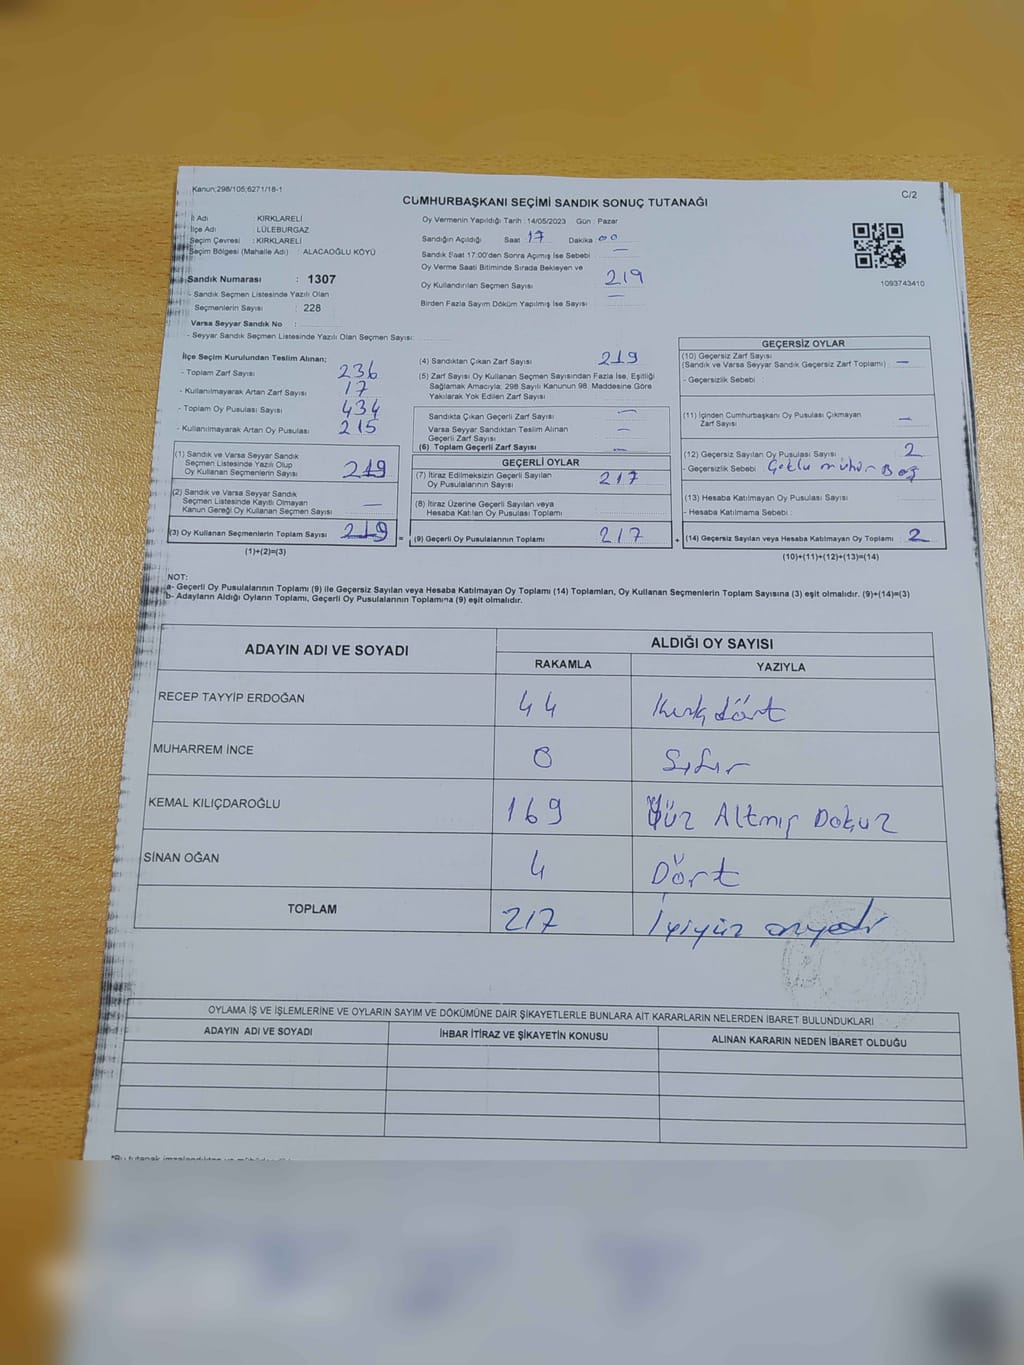 Kanun;298/105;6271/18-1
C/2
CUMHURBAŞKANI SEÇİMİ SANDIK SONUÇ TUTANAĞI
İl Adı : KIRKLARELİ
İlçe Adı : LÜLEBURGAZ
Seçim Çevresi : KIRKLARELİ
Seçim Bölgesi (Mahalle Adı) : ALACAOĞLU KÖYÜ
Sandık Numarası : 1307
- Sandık Seçmen Listesinde Yazılı Olan
Seçmenlerin Sayısı : 228
Varsa Seyyar Sandık No :
- Seyyar Sandık Seçmen Listesinde Yazılı Olan Seçmen Sayısı:
Oy Vermenin Yapıldığı Tarih :14/05/2023 Gün : Pazar
Sandığın Açıldığı Saat 17 Dakika 00
Sandık Saat 17:00'den Sonra Açımış İse Sebebi : —
Oy Verme Saati Bitiminde Sırada Bekleyen ve
Oy Kullandırılan Seçmen Sayısı : 219
Birden Fazla Sayım Döküm Yapılmış İse Sayısı : —
1093743410
İlçe Seçim Kurulundan Teslim Alınan;
- Toplam Zarf Sayısı : 236
- Kullanılmayarak Artan Zarf Sayısı : 17
- Toplam Oy Pusulası Sayısı : 434
- Kullanılmayarak Artan Oy Pusulası : 215
(1) Sandık ve Varsa Seyyar Sandık
Seçmen Listesinde Yazılı Olup
Oy Kullanan Seçmenlerin Sayısı : 219
(2) Sandık ve Varsa Seyyar Sandık
Seçmen Listesinde Kayıtlı Olmayan
Kanun Gereği Oy Kullanan Seçmen Sayısı : —
(3) Oy Kullanan Seçmenlerin Toplam Sayısı : 219
(1)+(2)=(3)
=
(4) Sandıktan Çıkan Zarf Sayısı : 219
(5) Zarf Sayısı Oy Kullanan Seçmen Sayısından Fazla İse, Eşitliği
Sağlamak Amacıyla; 298 Sayılı Kanunun 98. Maddesine Göre
Yakılarak Yok Edilen Zarf Sayısı :
Sandıkta Çıkan Geçerli Zarf Sayısı : —
Varsa Seyyar Sandıktan Teslim Alınan
Geçerli Zarf Sayısı : —
(6) Toplam Geçerli Zarf Sayısı : —
GEÇERLİ OYLAR
(7) İtiraz Edilmeksizin Geçerli Sayılan
Oy Pusulalarının Sayısı : 217
(8) İtiraz Üzerine Geçerli Sayılan veya
Hesaba Katılan Oy Pusulası Toplamı :
(9) Geçerli Oy Pusulalarının Toplamı : 217
+
GEÇERSİZ OYLAR
(10) Geçersiz Zarf Sayısı
(Sandık ve Varsa Seyyar Sandık Geçersiz Zarf Toplamı) : —
- Geçersizlik Sebebi :
(11) İçinden Cumhurbaşkanı Oy Pusulası Çıkmayan
Zarf Sayısı : —
(12) Geçersiz Sayılan Oy Pusulası Sayısı : 2
- Geçersizlik Sebebi : Çoklu mühür Boş
(13) Hesaba Katılmayan Oy Pusulası Sayısı :
- Hesaba Katılmama Sebebi :
(14) Geçersiz Sayılan veya Hesaba Katılmayan Oy Toplamı : 2
(10)+(11)+(12)+(13)=(14)
NOT:
a- Geçerli Oy Pusulalarının Toplamı (9) ile Geçersiz Sayılan veya Hesaba Katılmayan Oy Toplamı (14) Toplamları, Oy Kullanan Seçmenlerin Toplam Sayısına (3) eşit olmalıdır. (9)+(14)=(3)
b- Adayların Aldığı Oyların Toplamı, Geçerli Oy Pusulalarının Toplamına (9) eşit olmalıdır.
ADAYIN ADI VE SOYADI ALDIĞI OY SAYISI
RAKAMLA YAZIYLA
RECEP TAYYİP ERDOĞAN 44 Kırk dört
MUHARREM İNCE 0 Sıfır
KEMAL KILIÇDAROĞLU 169 Yüz Altmış Dokuz
SİNAN OĞAN 4 Dört
TOPLAM 217 İyiyüz onyedi
OYLAMA İŞ VE İŞLEMLERİNE VE OYLARIN SAYIM VE DÖKÜMÜNE DAİR ŞİKAYETLERLE BUNLARA AİT KARARLARIN NELERDEN İBARET BULUNDUKLARI
ADAYIN ADI VE SOYADI İHBAR İTİRAZ VE ŞİKAYETİN KONUSU ALINAN KARARIN NEDEN İBARET OLDUĞU